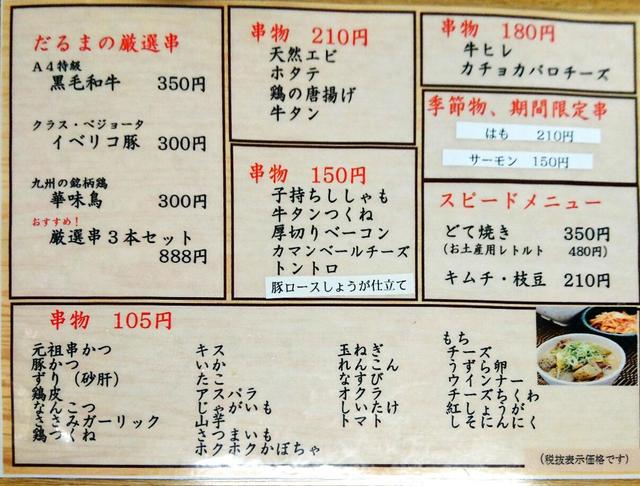 だるまの厳選串
A4特級
黒毛和牛 350円
クラス・ベジョータ
イベリコ豚 300円
九州の銘柄鶏
華味鳥 300円
おすすめ!
厳選串3本セット
888円
串物 210円
天然エビ
ホタテ
鶏の唐揚げ
牛タン
串物 150円
子持ちししゃも
牛タンつくね
厚切りベーコン
カマンベールチーズ
トントロ
豚ロースしょうが仕立て
串物 180円
牛ヒレ
カチョカバロチーズ
季節物、期間限定串
はも 210円
サーモン 150円
スピードメニュー
どて焼き 350円
(お土産用レトルト 480円)
キムチ・枝豆 210円
串物 105円
元祖串かつ
豚かつ
ずり(砂肝)
鶏皮
なんこつ
ささみガーリック
鶏つくね
キス
いか
たこ
アスパラ
じゃがいも
山芋
さつまいも
ホクホクかぼちゃ
玉ねぎ
れんこん
なすび
オクラ
しいたけ
トマト
もち
チーズ
うずら卵
ウインナー
チーズちくわ
紅しょうが
しそにんにく
(税抜表示価格です)